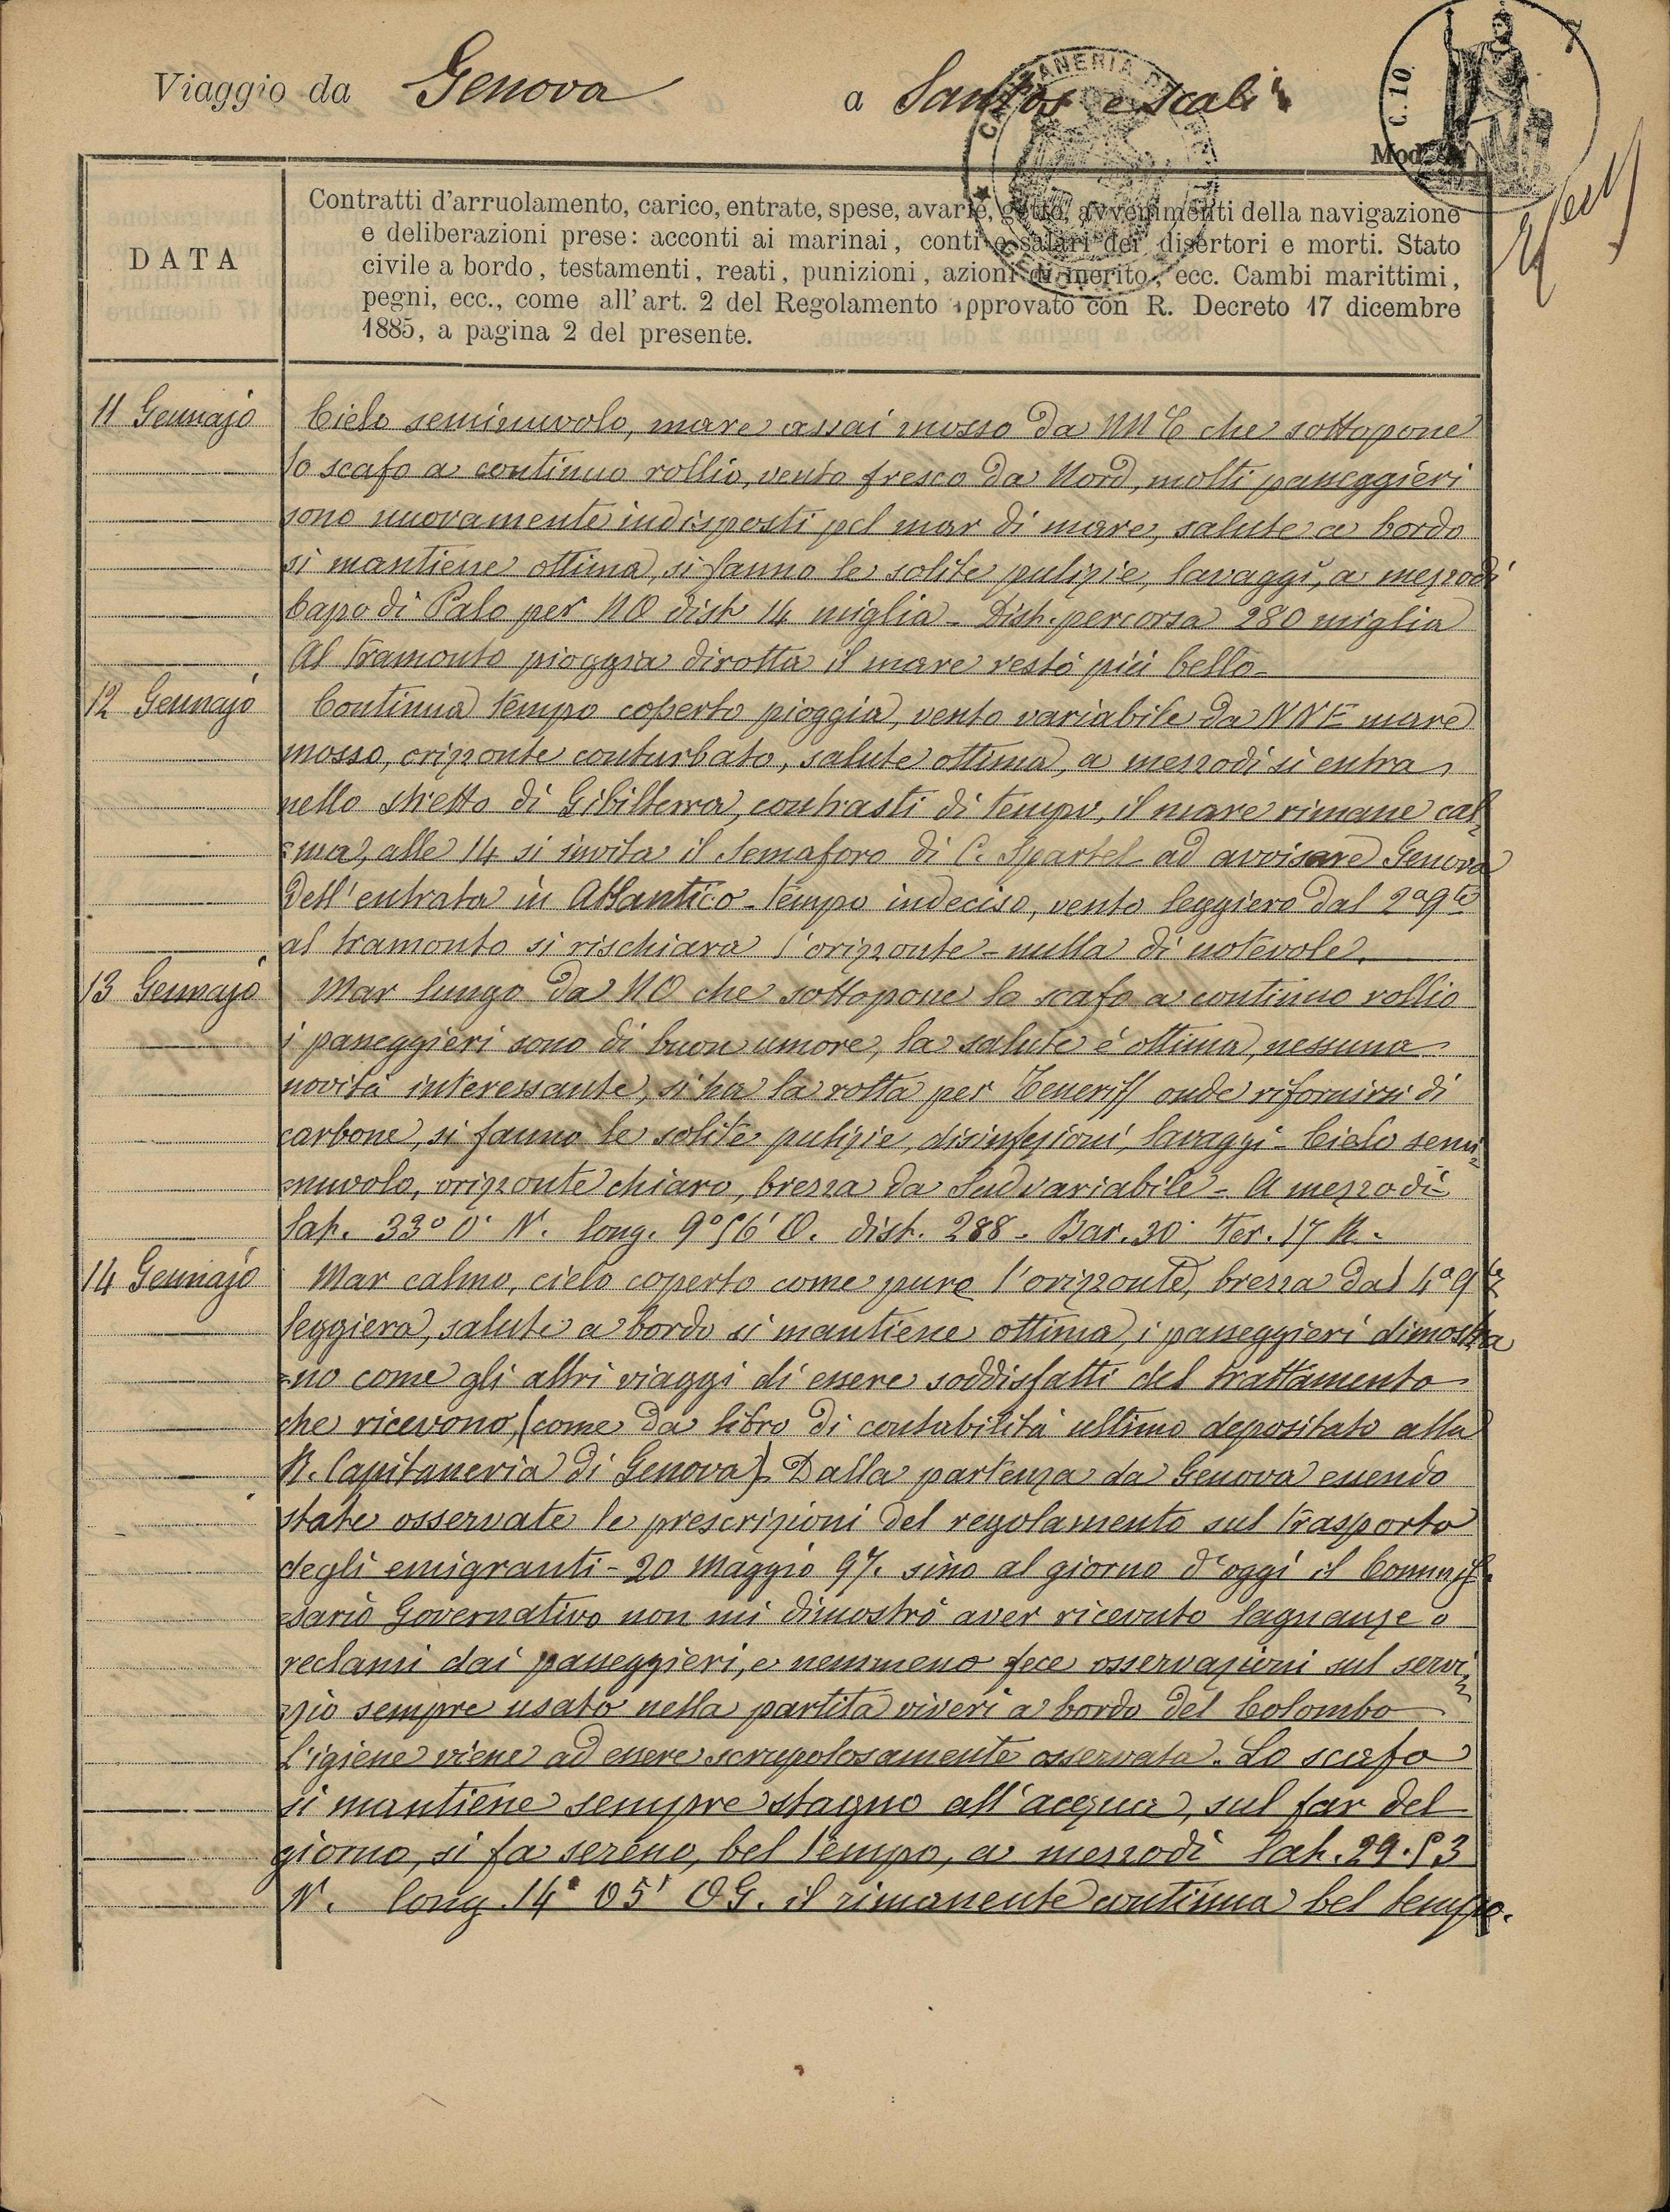 C. 10.
Viaggio da Genova a Santos e scali
Mod.
DATA
Contratti d'arruolamento, carico, entrate, spese, avarie, getto, avvenimenti della navigazione
e deliberazioni prese: acconti ai marinai, conti e salari dei disertori e morti. Stato
civile a bordo, testamenti, reati, punizioni, azioni di merito, ecc. Cambi marittimi,
pegni, ecc., come all'art. 2 del Regolamento approvato con R. Decreto 17 dicembre
1885, a pagina 2 del presente.
11 Gennajo Cielo seminuvolo, mare assai mosso da NNE che sottopone
lo scafo a continuo rollio, vento fresco da Nord, molti passeggieri
sono nuovamente indisposti pel mar di mare, salute a bordo
si mantiene ottima, si fanno le solite pulizie, lavaggi, a mezzodì
Capo di Palo per NO dist. 14 miglia - Dist. percorsa 280 miglia
Al tramonto pioggia dirotta il mare restò più bello-
12 Gennajo Continua tempo coperto pioggia, vento variabile da NNE mare
mosso, orizzonte conturbato, salute ottima, a mezzodì si entra
nello stretto di Gibilterra, contrasti di tempo, il mare rimane cal-
=ma, alle 14 si invita il Semaforo di C. Spartel ad avvisare Genova
dell'entrata in Atlantico - tempo indeciso, vento leggiero dal 2º qte
al tramonto si rischiara l'orizzonte - nulla di notevole.
13 Gennajo Mar lungo da NO che sottopone lo scafo a continuo rollio
i passeggieri sono di buon umore, la salute è ottima, nessuna
novità interessante, si ha la rotta per Teneriff onde rifornirsi di
carbone, si fanno le solite pulizie, disinfezioni, lavaggi - Cielo semi
=nuvolo, orizzonte chiaro, brezza da Sud variabile - A mezzodì
lat. 33º 0' N. long. 9º 56' O. dist. 288 - Bar. 30 Ter. 17 R.
14 Gennajo Mar calmo, cielo coperto come pure l'orizzonte, brezza dal 4º qte
leggiera, salute a bordo si mantiene ottima, i passeggieri dimostra
=no come gli altri viaggi di essere soddisfatti del trattamento
che ricevono, (come da libro di contabilità ultimo depositato alla
R. Capitaneria di Genova). Dalla partenza da Genova essendo
state osservate le prescrizioni del regolamento sul trasporto
degli emigranti - 20 Maggio 97. sino al giorno d'oggi il Commis
=sario Governativo non mi dimostrò aver ricevuto lagnanze o
reclami dai passeggieri, e nemmeno fece osservazioni sul servi
=zio sempre usato nella partita viveri a bordo del Colombo
L'igiene viene ad essere scrupolosamente osservata. Lo scafo
si mantiene sempre stagno all'acqua, sul far del
giorno, si fa sereno, bel tempo, a mezzodì lat. 29.53
N. long. 14º 05' OG. il rimanente continua bel tempo.